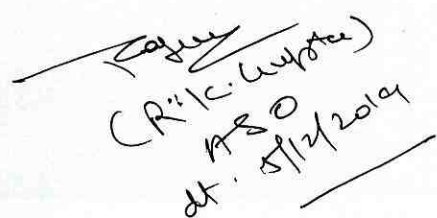 (R.K. Gupta)
ASO
dt. 5/12/2019